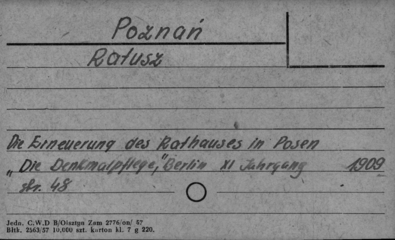 Poznań
Ratusz
Die Erneuerung des Rathauses in Posen
„Die Denkmalpflege," Berlin XI Jahrgang 1909
str. 48
Jedn. C.W.D B/Olsztyn Zam 2776/on/ 47
Bltk. 2563/57 10.000 szt. karton kl. 7 g 220.